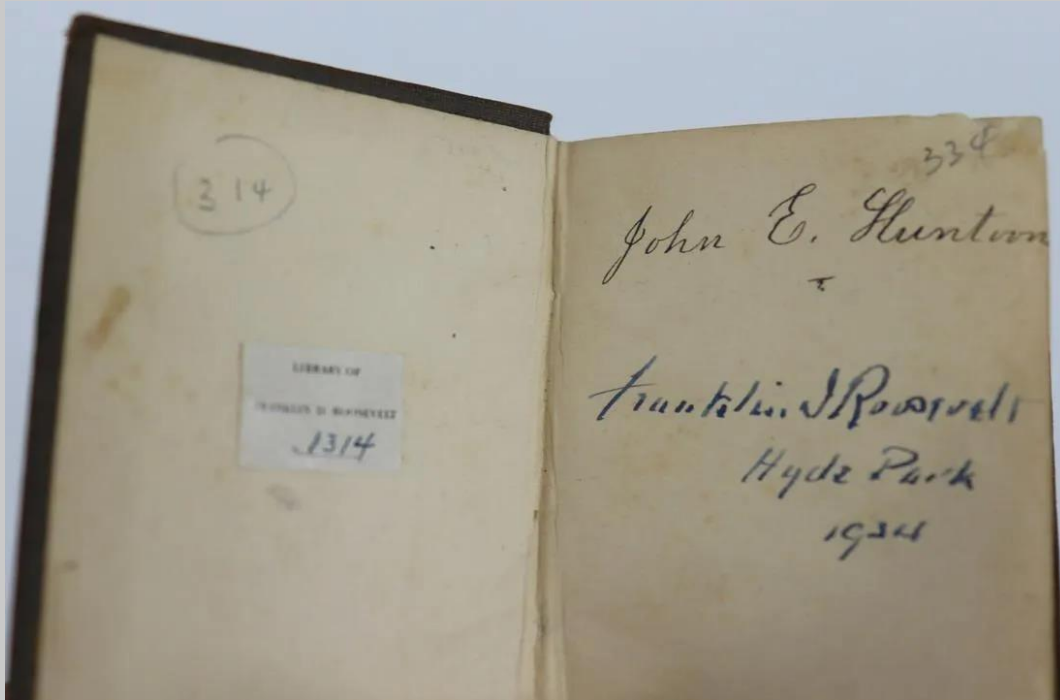 314
LIBRARY OF
FRANKLIN D. ROOSEVELT
1314
334
John E. Huntoon
Franklin D Roosevelt
Hyde Park
1934